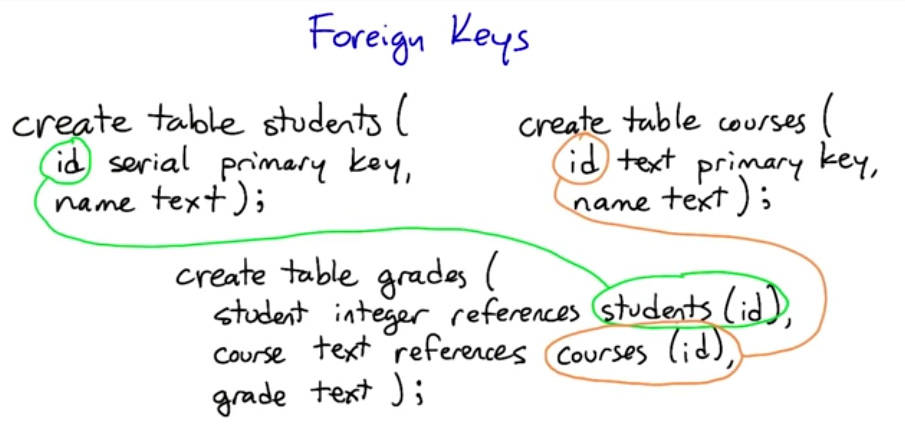 Foreign Keys
create table students (
id serial primary key,
name text);
create table courses (
id text primary key,
name text);
create table grades (
student integer references students (id),
course text references courses (id),
grade text );